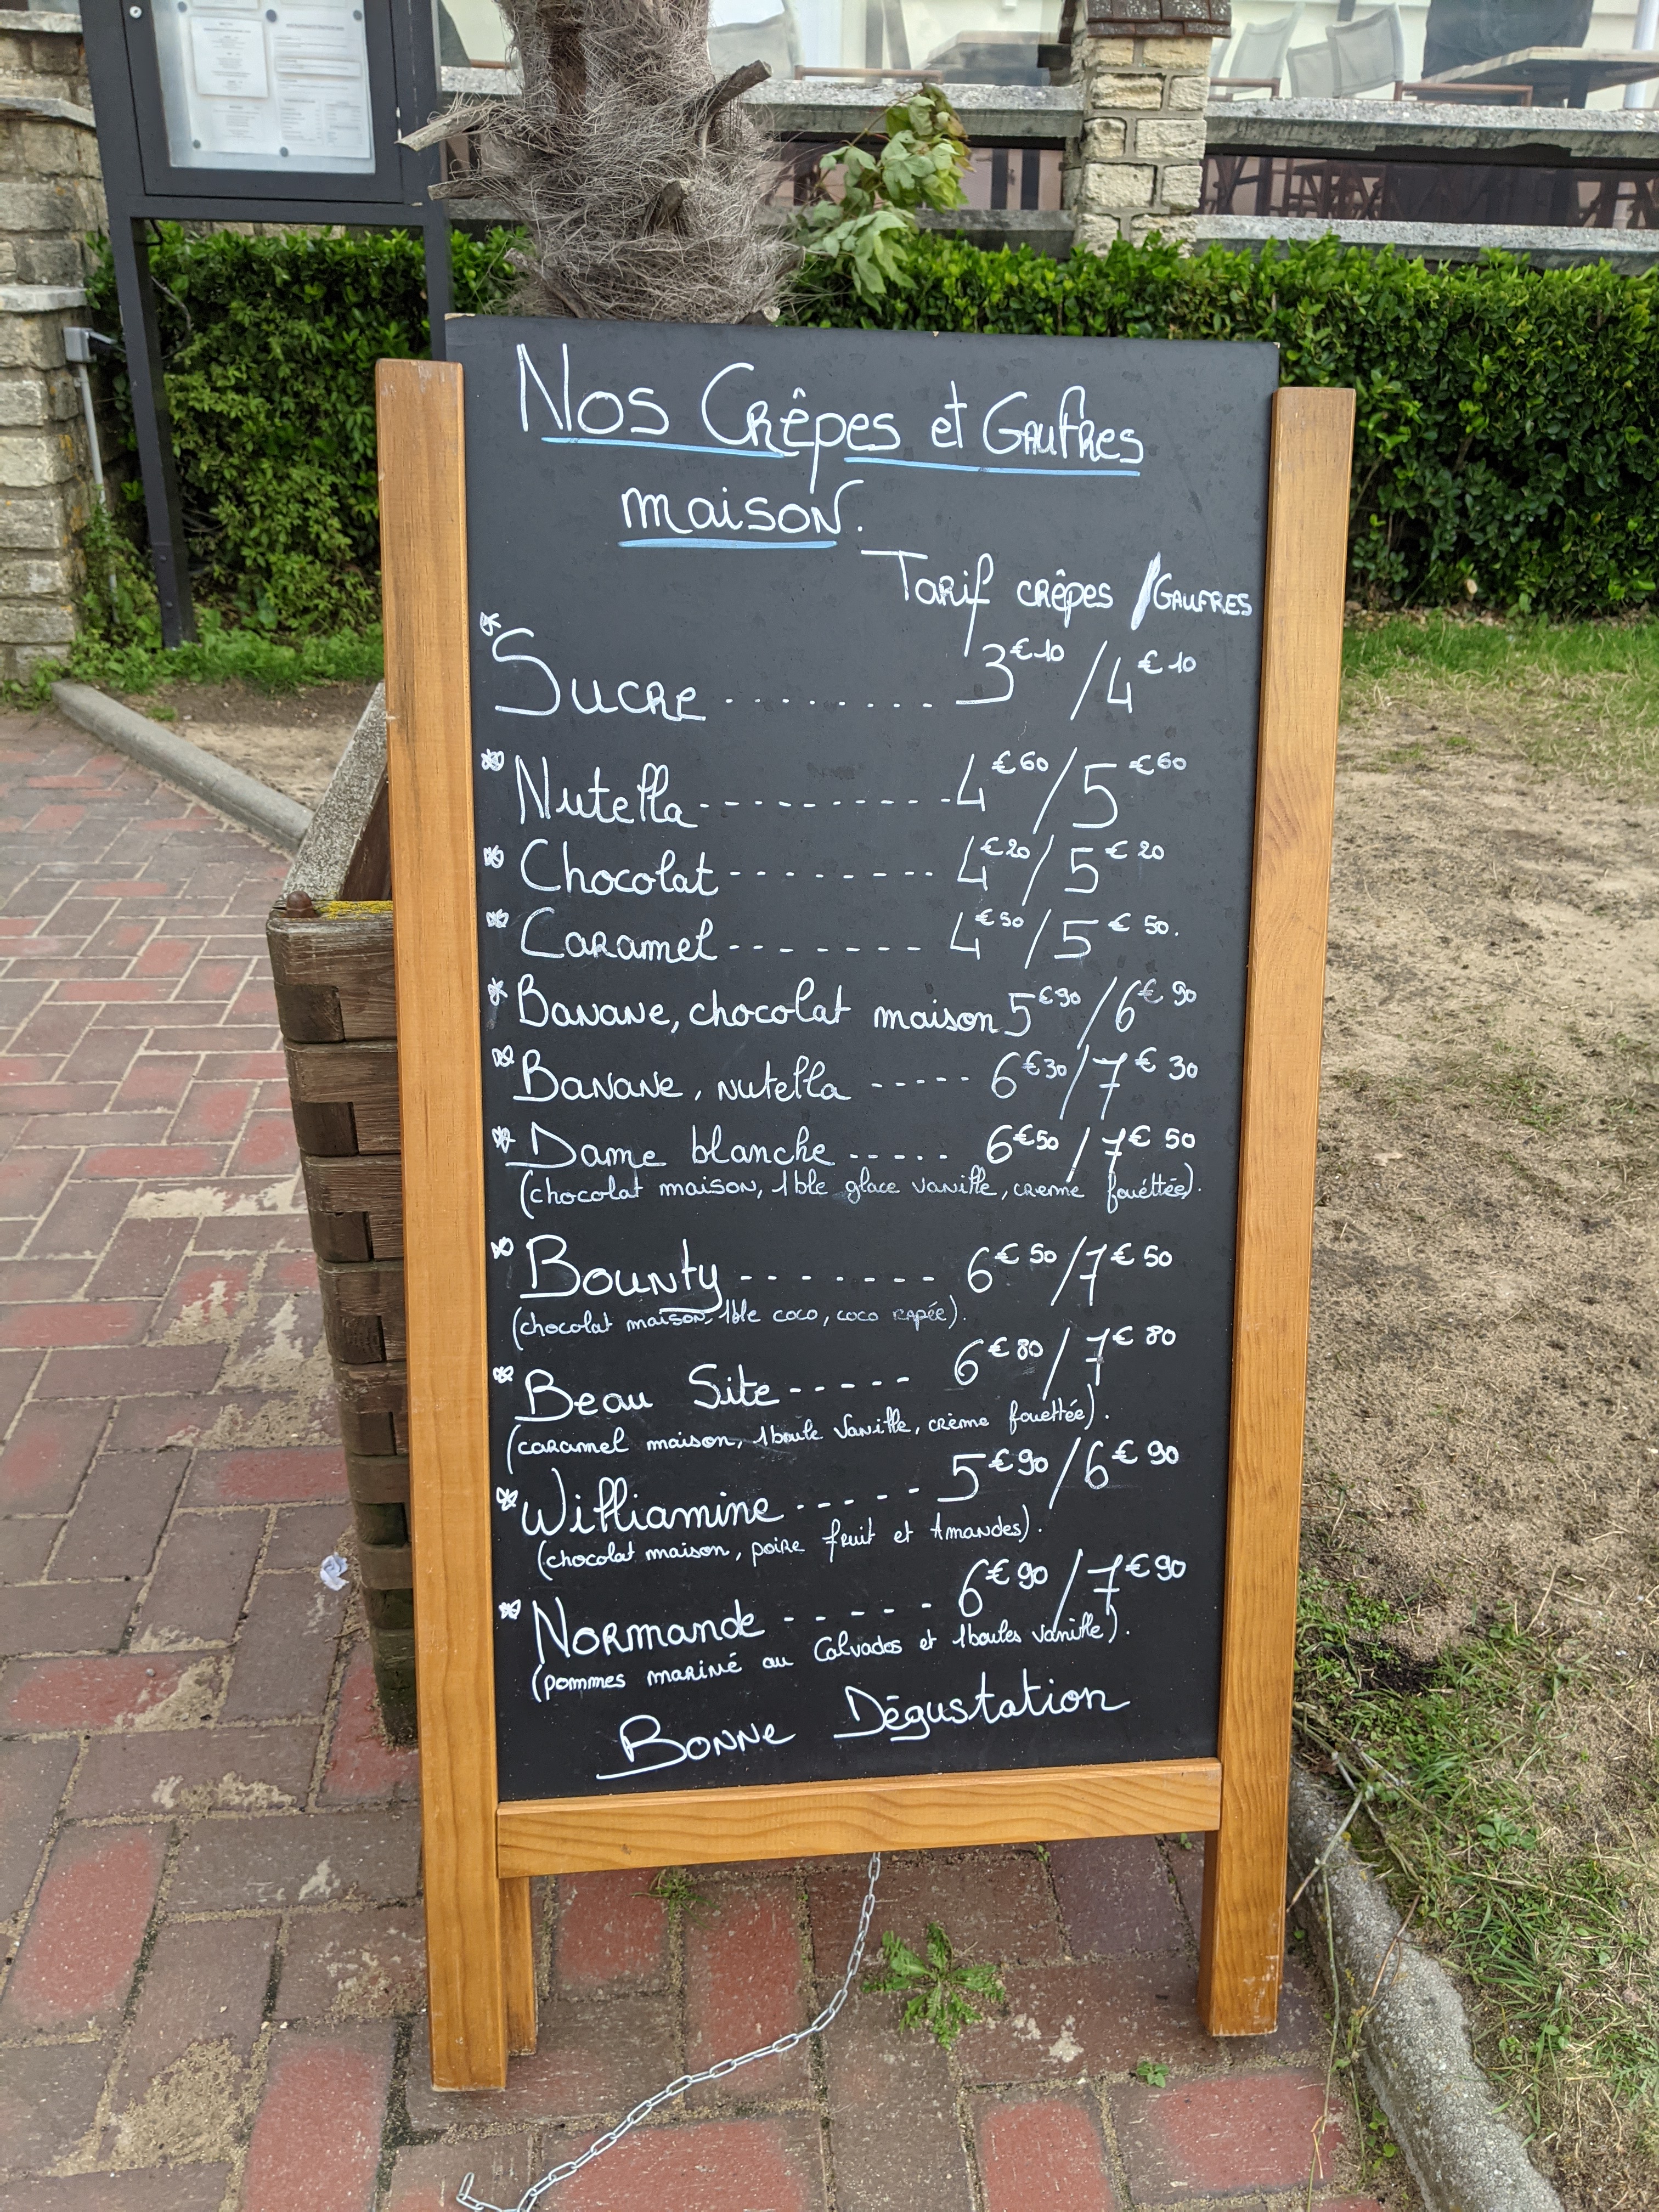 Nos Crêpes et Gaufres
maison.
Tarif crêpes / GAUFRES
* Sucre ........ 3€10 / 4€10
* Nutella ---------- 4€60 / 5€60
* Chocolat -------- 4€20 / 5€20
* Caramel ------- 4€50 / 5€50.
* Banane, chocolat maison 5€90 / 6€90
* Banane, nutella ----- 6€30 / 7€30
* Dame blanche ----- 6€50 / 7€50
(chocolat maison, 1ble glace vanille, creme fouéttée).
* Bounty ------- 6€50 / 7€50
(chocolat maison, 1ble coco, coco rapée).
* Beau Site ----- 6€80 / 7€80
(caramel maison, 1boule vanille, crème fouettée).
* Williamine ----- 5€90 / 6€90
(chocolat maison, poire fruit et Amandes).
* Normande ----- 6€90 / 7€90
(pommes mariné au Calvados et 1boules vanille).
Bonne Dégustation